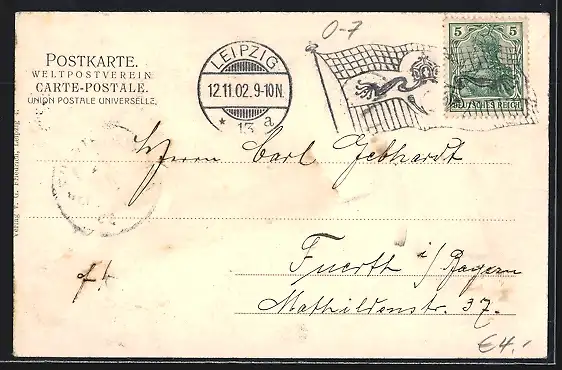 O-7
POSTKARTE.
WELTPOSTVEREIN.
CARTE-POSTALE.
UNION POSTALE UNIVERSELLE.
LEIPZIG
12.11.02.9-10N.
* 13 a
5 5
DEUTSCHES REICH
Herrn Carl Gebhardt
Fuerth i/Bayern
Mathildenstr. 37.
€4.-